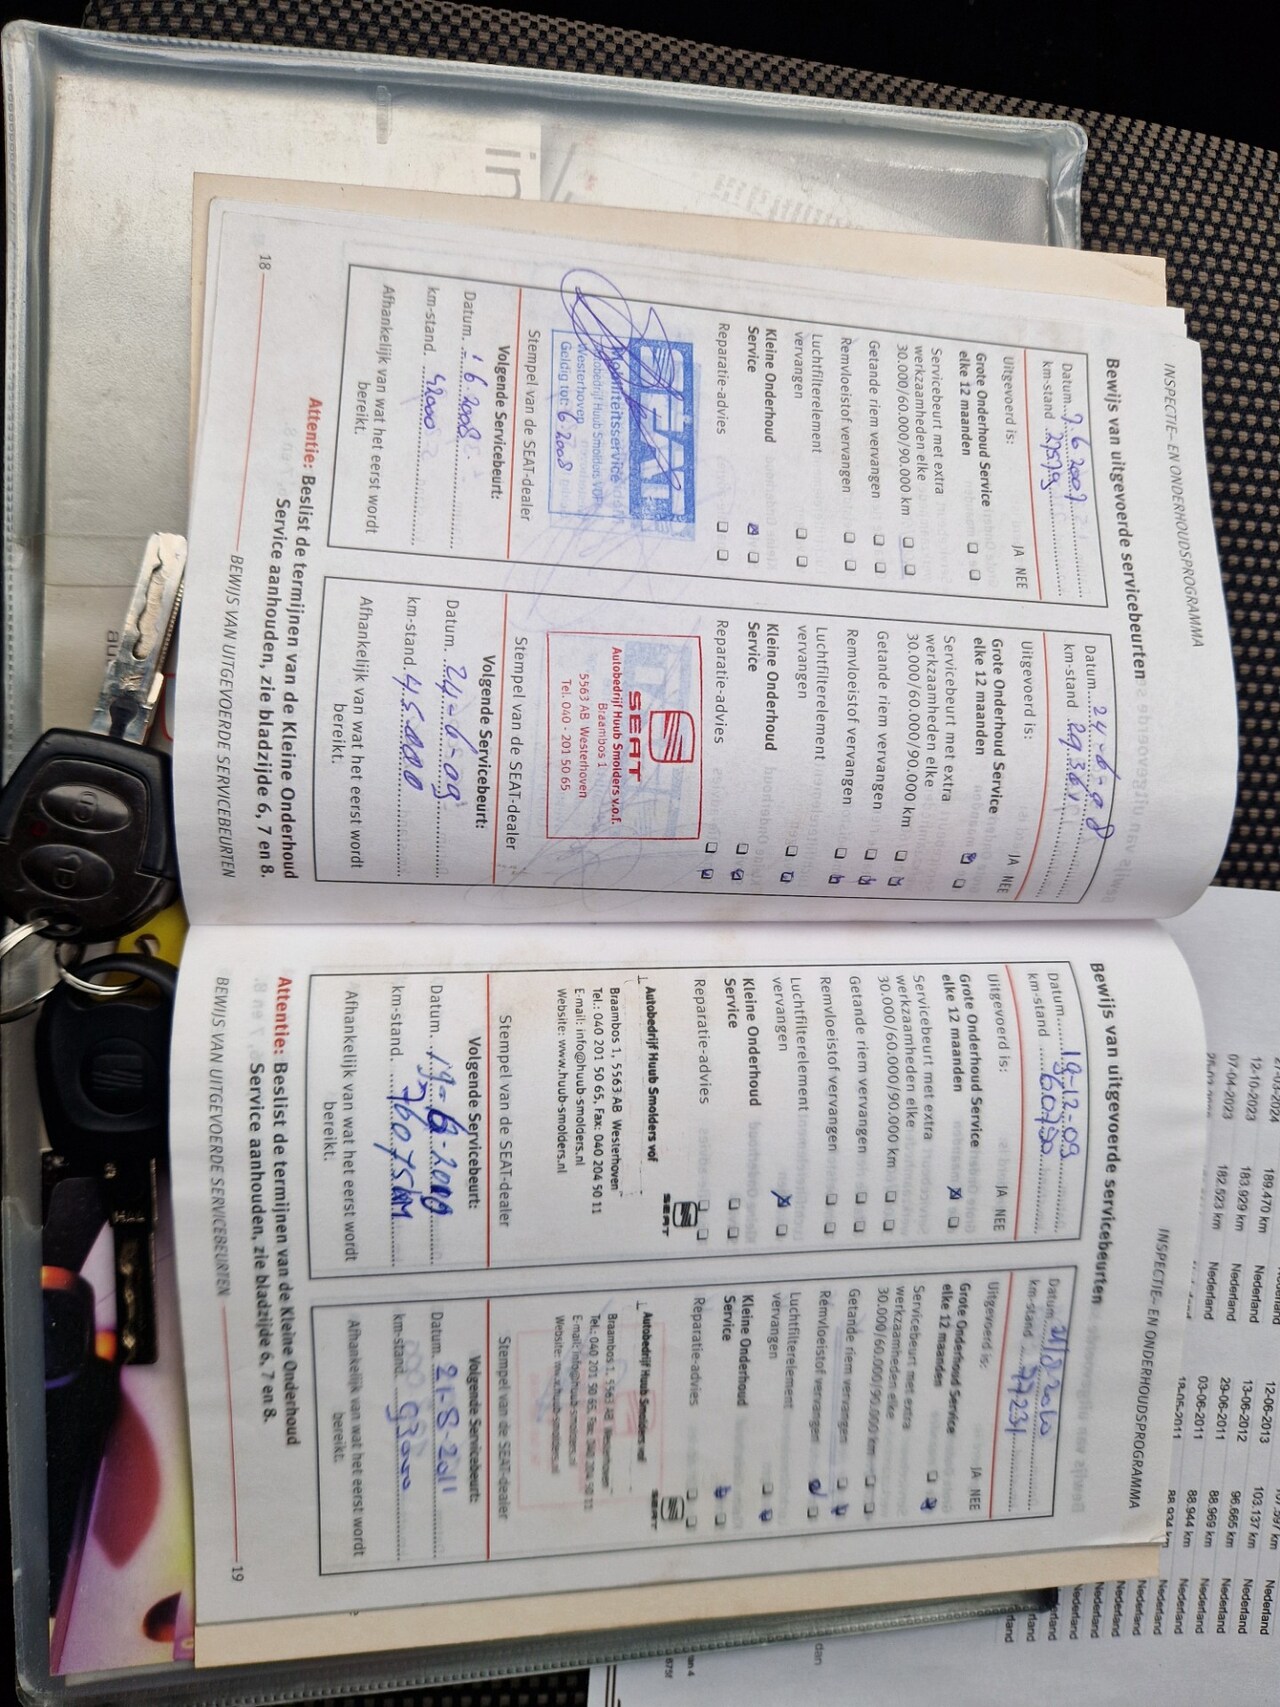 INSPECTIE- EN ONDERHOUDSPROGRAMMA
Bewijs van uitgevoerde servicebeurten
Datum
km-stand 27579
Uitgevoerd is: JA NEE
Grote Onderhoud Service
elke 12 maanden
Servicebeurt met extra
werkzaamheden elke
30.000/60.000/90.000 km
Getande riem vervangen
Remvloeistof vervangen
Luchtfilterelement
vervangen
Kleine Onderhoud
Service
Reparatie-advies
SEAT
Mobiliteitsservice
Autobedrijf Huub Smolders VOF
Westerhoven
Geldig tot: 6 2008
Stempel van de SEAT-dealer
Volgende Servicebeurt:
Datum. 6. 2008
km-stand. 42000
Afhankelijk van wat het eerst wordt
bereikt.
Datum 24-6-08
km-stand 29361
Uitgevoerd is: JA NEE
Grote Onderhoud Service
elke 12 maanden
Servicebeurt met extra
werkzaamheden elke
30.000/60.000/90.000 km
Getande riem vervangen
Remvloeistof vervangen
Luchtfilterelement
vervangen
Kleine Onderhoud
Service
Reparatie-advies
SEAT
Autobedrijf Huub Smolders v.o.f.
Braambos 1
5563 AB Westerhoven
Tel. 040 - 201 50 65
Stempel van de SEAT-dealer
Volgende Servicebeurt:
Datum. 24-6-09
km-stand. 45.000
Afhankelijk van wat het eerst wordt
bereikt.
Attentie: Beslist de termijnen van de Kleine Onderhoud
Service aanhouden, zie bladzijde 6, 7 en 8.
18
BEWIJS VAN UITGEVOERDE SERVICEBEURTEN
INSPECTIE- EN ONDERHOUDSPROGRAMMA
Bewijs van uitgevoerde servicebeurten
Datum 19-12-09
km-stand 60790
Uitgevoerd is: JA NEE
Grote Onderhoud Service
elke 12 maanden
Servicebeurt met extra
werkzaamheden elke
30.000/60.000/90.000 km
Getande riem vervangen
Remvloeistof vervangen
Luchtfilterelement
vervangen
Kleine Onderhoud
Service
Reparatie-advies
SEAT
Autobedrijf Huub Smolders vof
Braambos 1, 5563 AB Westerhoven
Tel.: 040 201 50 65, Fax: 040 204 50 11
E-mail: info@huub-smolders.nl
Website: www.huub-smolders.nl
Stempel van de SEAT-dealer
Volgende Servicebeurt:
Datum. 19-6-2010
km-stand. 76075 KM
Afhankelijk van wat het eerst wordt
bereikt.
Datum
km-stand 77231
Uitgevoerd is: JA NEE
Grote Onderhoud Service
elke 12 maanden
Servicebeurt met extra
werkzaamheden elke
30.000/60.000/90.000 km
Getande riem vervangen
Remvloeistof vervangen
Luchtfilterelement
vervangen
Kleine Onderhoud
Service
Reparatie-advies
SEAT
Autobedrijf Huub Smolders vof
Braambos 1, 5563 AB Westerhoven
Tel.: 040 201 50 65, Fax: 040 204 50 11
E-mail: info@huub-smolders.nl
Website: www.huub-smolders.nl
Stempel van de SEAT-dealer
Volgende Servicebeurt:
Datum. 21-8-2011
km-stand. 93000
Afhankelijk van wat het eerst wordt
bereikt.
Attentie: Beslist de termijnen van de Kleine Onderhoud
Service aanhouden, zie bladzijde 6, 7 en 8.
BEWIJS VAN UITGEVOERDE SERVICEBEURTEN
19
189.470 km Nederland 12-06-2013
12-10-2023 183.929 km Nederland 13-06-2012 103.137 km Nederland
07-04-2023 182.623 km Nederland 29-06-2011 96.665 km Nederland
03-06-2011 88.969 km Nederland
88.944 km Nederland